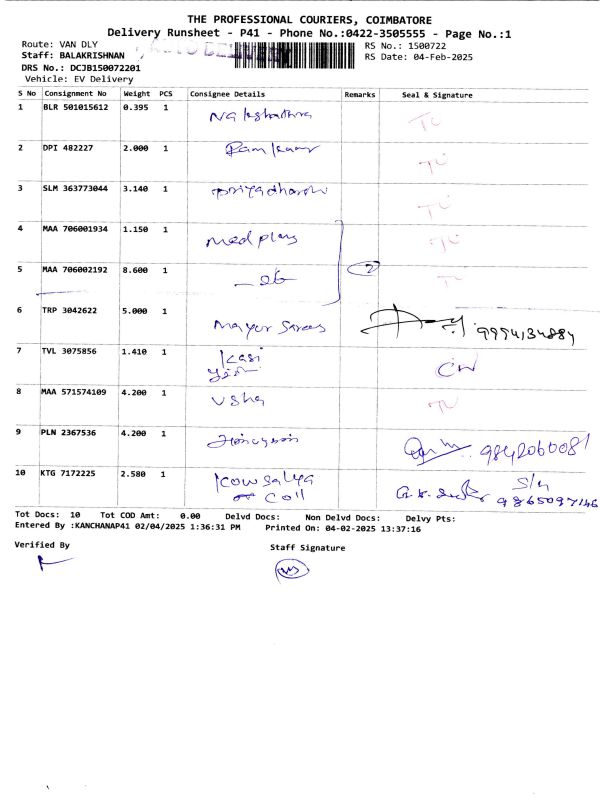 THE PROFESSIONAL COURIERS, COIMBATORE
Delivery Runsheet - P41 - Phone No.:0422-3505555 - Page No.:1
Route: VAN DLY
RS No.: 1500722
Staff: BALAKRISHNAN
RS Date: 04-Feb-2025
DRS No.: DCJB150072201
Vehicle: EV Delivery
S No Consignment No Weight PCS Consignee Details Remarks Seal & Signature
1 BLR 501015612 0.395 1
2 DPI 482227 2.000 1 Ram kumar
3 SLM 363773044 3.140 1
4 MAA 706001934 1.150 1 Med plus
5 MAA 706002192 8.600 1 2
6 TRP 3042622 5.000 1 9994134884
7 TVL 3075856 1.410 1 Kasi
8 MAA 571574109 4.200 1 Usha
9 PLN 2367536 4.200 1 9842060081
10 KTG 7172225 2.580 1 Kowsalya Coil 9865097146
Tot Docs: 10 Tot COD Amt: 0.00 Delvd Docs: Non Delvd Docs: Delvy Pts:
Entered By :KANCHANAP41 02/04/2025 1:36:31 PM Printed On: 04-02-2025 13:37:16
Verified By
Staff Signature